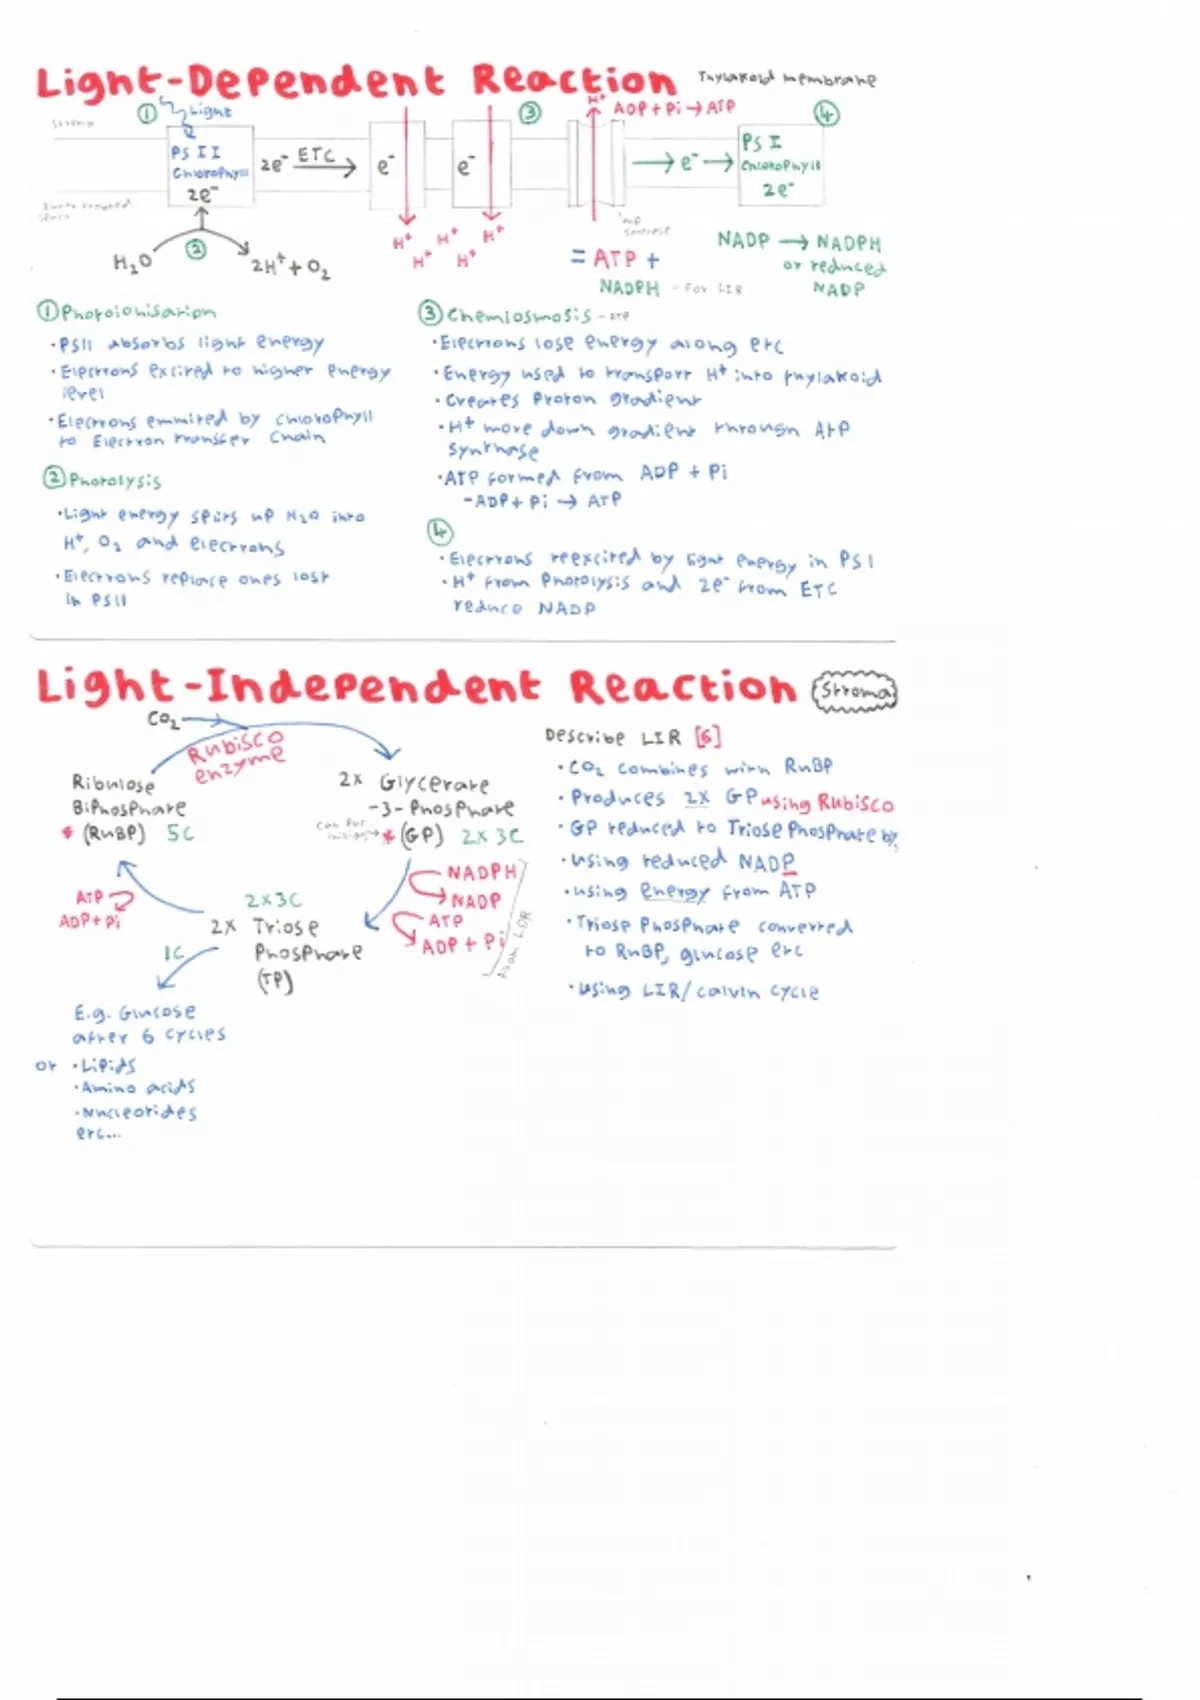 Light-Dependent Reaction Thylakoid membrane
① Light
③ H+ ADP + Pi → ATP
④
Stroma
PS II
Chlorophyll
2e-
2e- ETC →
e-
e-
→ e- →
PS I
Chlorophyll
2e-
H2O ② 2H+ + O2
H+ H+ H+
H+ H+
ATP synthase
= ATP +
NADPH - For LIR
NADP → NADPH
or reduced
NADP
① Photoionisation
• PSII absorbs light energy
• Electrons excited to higher energy
level
• Electrons emmited by chlorophyll
to Electron transfer Chain
② Photolysis
• Light energy splits up H2O into
H+, O2 and electrons
• Electrons replace ones lost
in PSII
③ Chemiosmosis - ATP
• Electrons lose energy along etc
• Energy used to transport H+ into thylakoid
• Creates Proton gradient
• H+ move down gradient through ATP
synthase
• ATP formed from ADP + Pi
- ADP + Pi → ATP
④
• Electrons reexcited by light energy in PS I
• H+ from Photolysis and 2e- from ETC
reduce NADP
Light-Independent Reaction Stroma
CO2
Rubisco
enzyme
Ribulose
BiPhosphate
* (RuBP) 5C
2x Glycerate
-3-Phosphate
* (GP) 2x3C
NADPH
NADP
ATP
ADP + Pi
from LDR
2x3C
2x Triose
Phosphate
(TP)
ATP
ADP + Pi
1C
E.g. Glucose
after 6 cycles
or • Lipids
• Amino acids
• Nucleotides
etc...
Describe LIR [6]
• CO2 combines with RuBP
• Produces 2x GP using Rubisco
• GP reduced to Triose Phosphate by
• using reduced NADP
• using energy from ATP
• Triose Phosphate converted
to RuBP, glucose etc
• Using LIR/calvin cycle